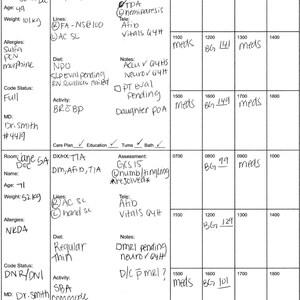 Age: 49
Weight: 101kg
Allergies:
Sulfa
PCN
morphine
Code Status:
Full
MD:
Dr. Smith
#4419
Lines:
FA - NS@100
AC SL
Diet:
NPO
SLP eval pending
RN swallow failed
Activity:
BR EBP
Care Plan ✓ Education ✓ Turns ✓ Bath ✓
TPA
hemiparesis
Tele:
Afib
Vitals Q4H
Notes:
Accu✓ Q4HS
Neuro✓ Q4H
PT eval
pending
Daughter POA
1100
meds
1200
BG 141
1300
meds
1400
1500
meds
1600
BG 149
1700
meds
1800
Room: 5A
Jane
Doe
Name:
Age: 71
Weight: 52kg
Allergies:
NKDA
Code Status:
DNR/DNI
MD:
Dr. Smith
DX/HX: TIA
DM, Afib, TIA
Lines:
AC SL
hand SL
Diet:
Regular
thin
Activity:
SBA
Assessment:
GCS 15
numb/tingling
*resolved*
Tele:
Afib
Vitals Q4H
Notes:
MRI pending
neuro✓ Q4H
D/C p MRI?
0700
0800
BG 99
0900
meds
1000
1100
1200
BG 129
1300
1400
1500
meds
1600
BG 101
1700
meds
1800